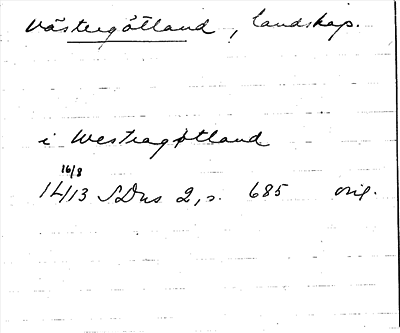 Västergötland, landskap.
i Westragøtland
16/8
1413 SDns 2, s. 685 orig.